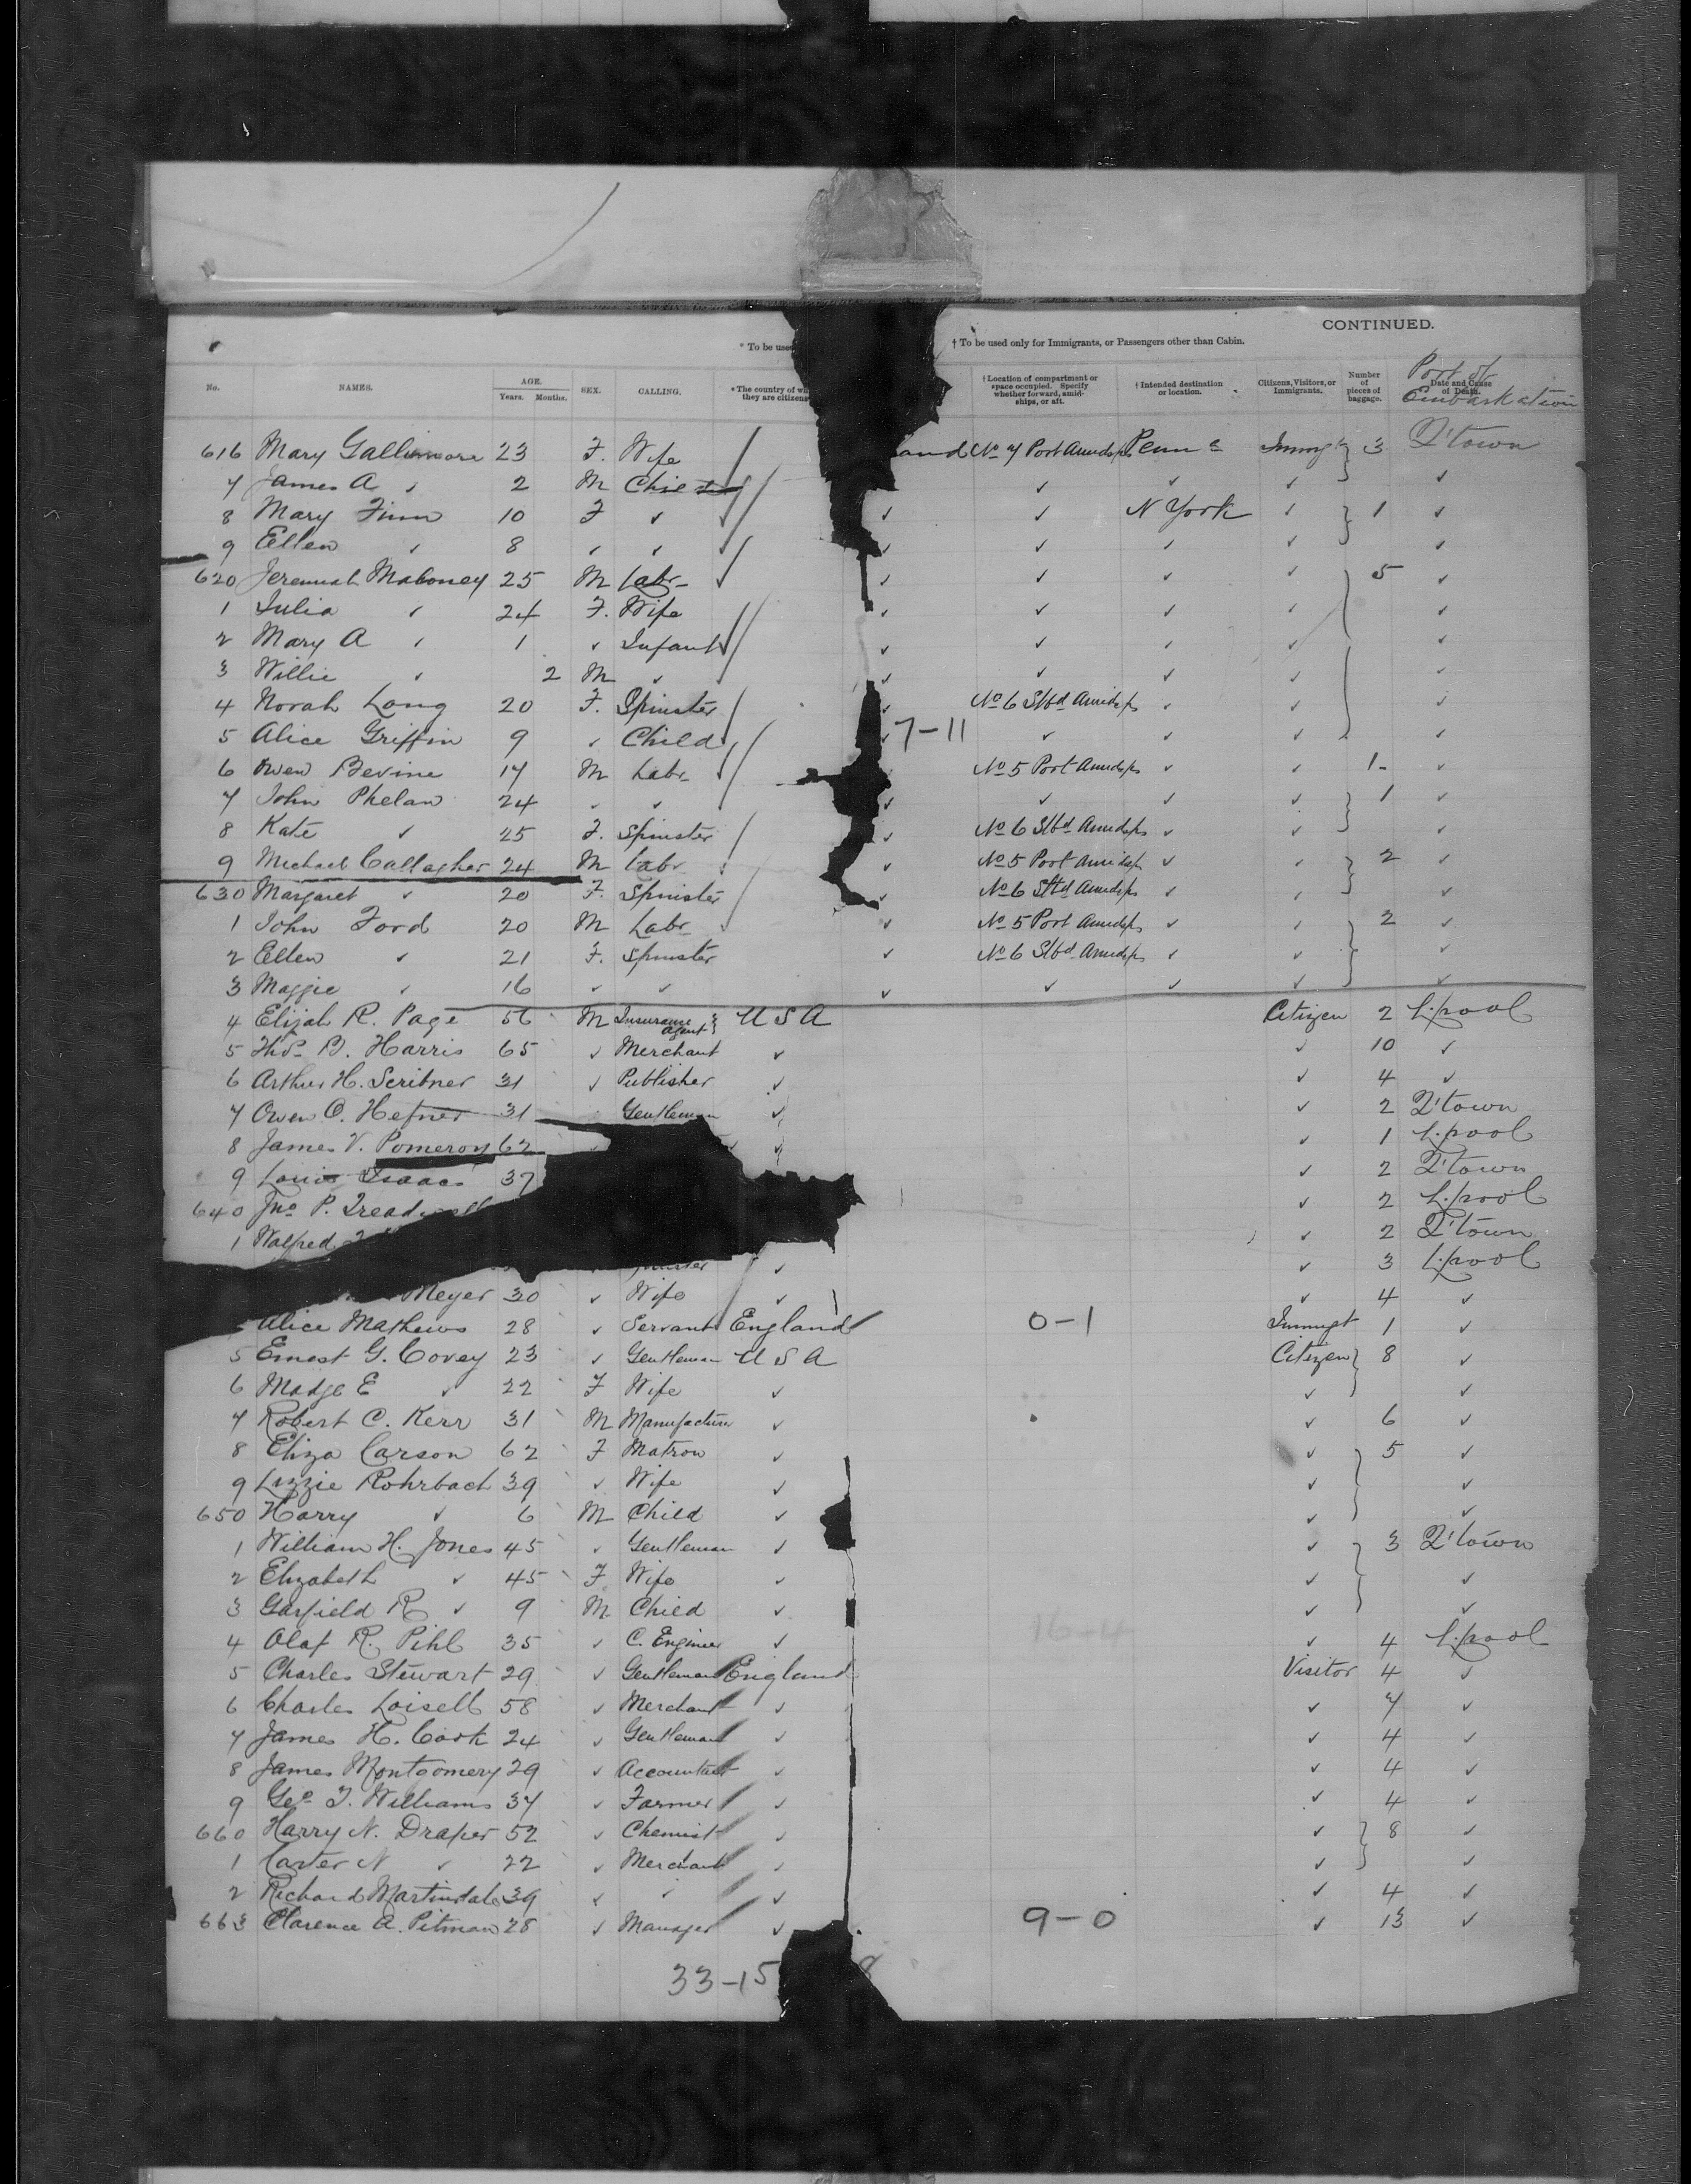 CONTINUED.
* To be used † To be used only for Immigrants, or Passengers other than Cabin.
No. NAMES. AGE. Years. Months. SEX. CALLING. * The country of wh they are citizens † Location of compartment or space occupied. Specify whether forward, amidships, or aft. † Intended destination or location. Citizens, Visitors, or Immigrants. Number of pieces of baggage. Date and Cause of Death. Port of Embarkation
616 Mary Gallimore 23 F. Wife and No 7 Port Amidsps Penn a Immgt 3 Q'town
7 James A ✓ 2 M Child ✓ ✓ ✓ ✓
8 Mary Finn 10 F ✓ ✓ ✓ N York ✓ 1 ✓
9 Ellen ✓ 8 ✓ ✓ ✓ ✓ ✓ ✓ ✓
620 Jeremiah Mahoney 25 M Labr ✓ ✓ ✓ ✓ 5 ✓
1 Julia ✓ 24 F. Wife ✓ ✓ ✓ ✓ ✓
2 Mary A ✓ 1 ✓ Infant ✓ ✓ ✓ ✓ ✓
3 Willie ✓ 2 M ✓ ✓ ✓ ✓ ✓ ✓
4 Norah Long 20 F. Spinster ✓ No 6 Stbd Amidsps ✓ ✓ ✓
5 Alice Griffin 9 ✓ Child ✓ 7-11 ✓ ✓ ✓ ✓
6 Owen Bevine 17 M Labr No 5 Port Amidsps ✓ ✓ 1 ✓
7 John Phelan 24 ✓ ✓ ✓ ✓ ✓ ✓ 1 ✓
8 Kate ✓ 25 F. Spinster ✓ No 6 Stbd Amidsps ✓ ✓ ✓
9 Michael Callagher 24 M Labr ✓ No 5 Port Amidsps ✓ ✓ 2 ✓
630 Margaret ✓ 20 F. Spinster ✓ No 6 Stbd Amidsps ✓ ✓ ✓
1 John Ford 20 M Labr ✓ No 5 Port Amidsps ✓ ✓ 2 ✓
2 Ellen ✓ 21 F. Spinster ✓ No 6 Stbd Amidsps ✓ ✓ ✓
3 Maggie ✓ 16 ✓ ✓ ✓ ✓ ✓ ✓ ✓
4 Elijah R. Page 56 M Insurance Agent U S A Citizen 2 L.pool
5 Thos B. Harris 65 ✓ Merchant ✓ ✓ 10 ✓
6 Arthur H. Scribner 31 ✓ Publisher ✓ ✓ 4 ✓
7 Owen O. Hefner 31 Gentleman ✓ ✓ 2 Q'town
8 James V. Pomeroy 62 ✓ 1 L.pool
9 Louis Isaacs 37 ✓ 2 Q'town
640 Jno P. Treadwell ✓ 2 L.pool
1 Walfred ✓ 2 Q'town
✓ ✓ 3 L.pool
Meyer 30 ✓ Wife ✓ ✓ 4 ✓
Alice Mathews 28 ✓ Servant England 0-1 Immgt 1 ✓
5 Ernest G. Covey 23 ✓ Gentleman U S A Citizen 8 ✓
6 Madge E ✓ 22 F Wife ✓ ✓ ✓
7 Robert C. Kerr 31 M Manufacturer ✓ ✓ 6 ✓
8 Eliza Carson 62 F Matron ✓ ✓ 5 ✓
9 Lizzie Rohrbach 39 ✓ Wife ✓ ✓ ✓
650 Harry ✓ 6 M Child ✓ ✓ ✓
1 William H. Jones 45 ✓ Gentleman ✓ ✓ 3 Q'town
2 Elizabeth ✓ 45 F Wife ✓ ✓ ✓
3 Garfield R ✓ 9 M Child ✓ ✓ ✓
4 Olaf R. Pihl 35 ✓ C. Engineer ✓ 16-4 ✓ 4 L.pool
5 Charles Stewart 29 ✓ Gentleman England Visitor 4 ✓
6 Charles Loisell 58 ✓ Merchant ✓ ✓ 7 ✓
7 James H. Cook 24 ✓ Gentleman ✓ ✓ 4 ✓
8 James Montgomery 29 ✓ Accountant ✓ ✓ 4 ✓
9 Geo T. Williams 37 ✓ Farmer ✓ ✓ 4 ✓
660 Harry N. Draper 52 ✓ Chemist ✓ ✓ 8 ✓
1 Carter N ✓ 22 ✓ Merchant ✓ ✓ ✓
2 Richard Martindale 39 ✓ ✓ ✓ ✓ 4 ✓
663 Clarence A. Pitman 28 ✓ Manager ✓ 9-0 ✓ 13 ✓
33-15 8